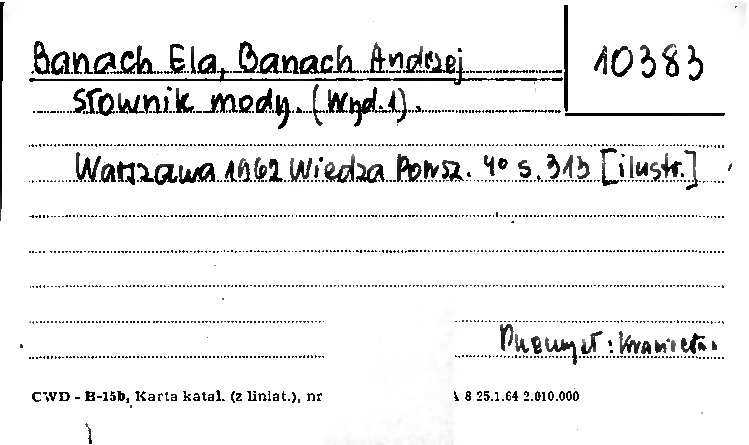 Banach Ela, Banach Andrzej
10383
Słownik mody. (Wyd.1).
Warszawa 1962 Wiedza Powsz. 4° s. 313 [ilustr.]
CWD - H-15b, Karta katal. (z liniat.), nr A 8 25.1.64 2.010.000